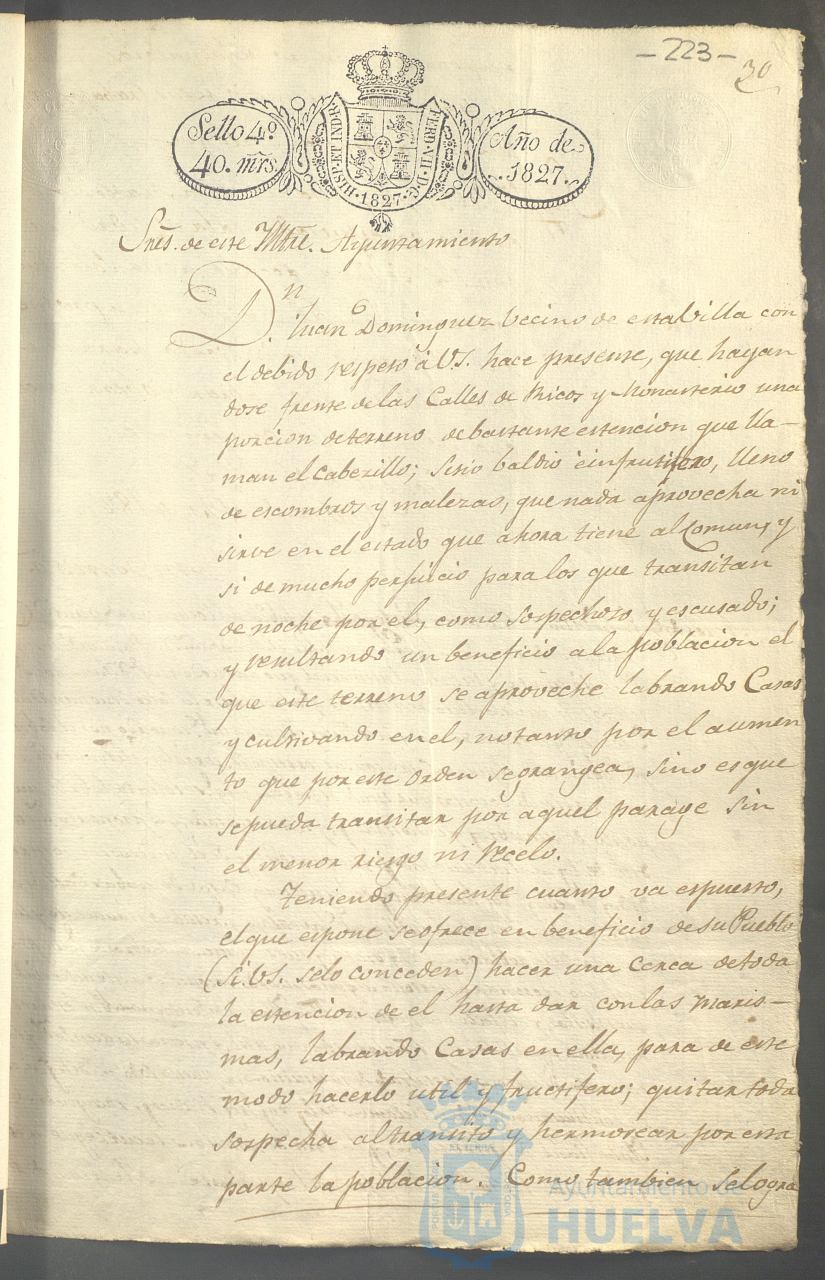 -223-
30
Sello 4º
40. mrs
HISP. ET IND. R.
FERD. VII. D. G.
1827
Año de
1827.
Sres. de este Yltre. Ayuntamiento
Dn. Juan Dominguez vecino de esta Villa con
el debido respeto á VS. hace presente, que hayan
dose frente de las Calles de Ricos y Monasterio una
porcion de terreno de bastante estencion que lla-
man el Cabezillo; sitio baldio é infrutifero, lleno
de escombros y malezas, que nada aprovecha ni
sirve en el estado que ahora tiene al Comun, y
si de mucho perjuicio para los que transitan
de noche por el, como sospechoso y escusado;
y resultando un beneficio a la poblacion el
que este terreno se aproveche labrando Casas
y cultivando en el, no tanto por el aumen
to que por este orden se grangea, sino es que
se pueda transitar por aquel parage sin
el menor riesgo ni recelo.
Teniendo presente cuanto va espuesto,
el que espone se ofrece en beneficio de su Pueblo
(si VS. se lo conceden) hacer una Cerca de toda
la estencion de el hasta dar con las maris-
mas, labrando Casas en ella, para de este
modo hacerlo util y fructifero; quitar toda
sospecha al transito y hermosear por esta
parte la poblacion. Como tambien se logra
Ayuntamiento de
HUELVA